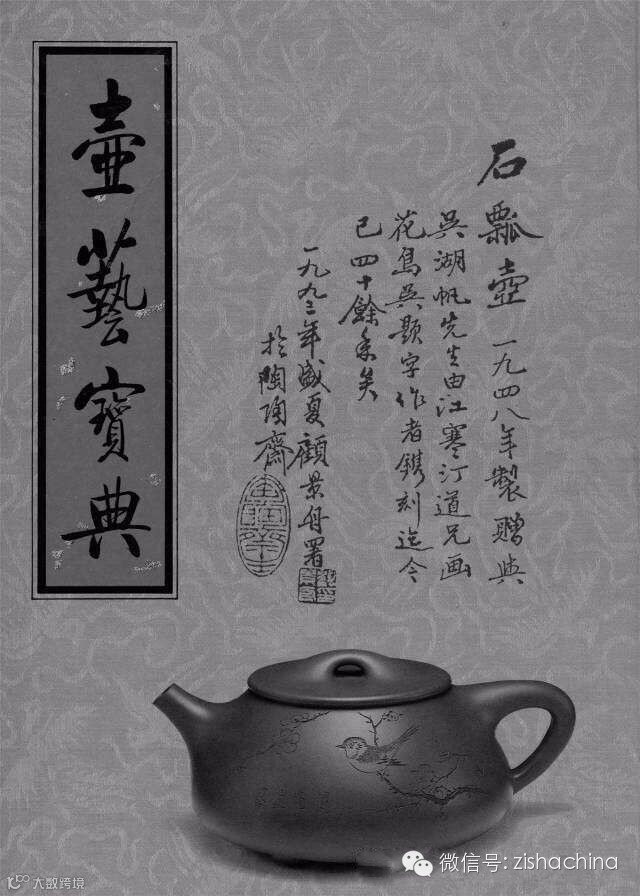 壺藝寶典
石瓢壺 一九四八年製贈與
吳湖帆先生由江寒汀道兄画
花鳥吳題字作者鐫刻迄今
已四十餘年矣
一九九三年盛夏顧景舟署
於陶陶齋
微信号: zishachina
大数跨境